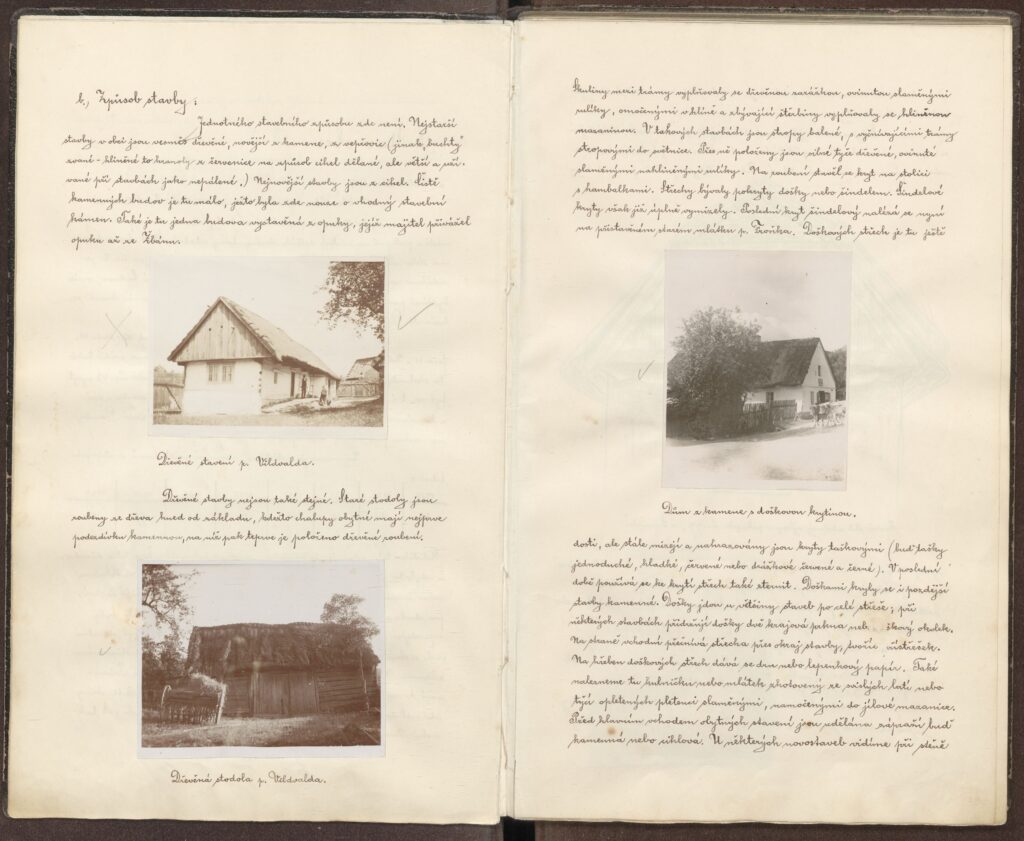 b., Způsob stavby:
Jednotného stavebního způsobu zde není. Nejstarší
stavby v obci jsou vesměs dřevěné, novější z kamene, z vepřovic (jinak „buchty"
zvané - hliněné to hranoly z červenice na způsob cihel dělané, ale větší a uží-
vané při stavbách jako nepálené.) Nejnovější stavby jsou z cihel. Čistě
kamenných budov je tu málo, ježto byla zde nouze o vhodný stavební
kámen. Také je tu jedna budova vystavěná z opuky, jejíž majitel přivážel
opuku až ze Žbánu.
Dřevěné stavení p. Vildvalda.
Dřevěné stavby nejsou také stejné. Staré stodoly jsou
roubeny ze dřeva hned od základu, kdežto chalupy obytné mají nejprve
podezdívku kamennou, na níž pak teprve je položeno dřevěné roubení.
Dřevěná stodola p. Vildvalda.
Škuliny mezi trámy vyplňovaly se dřevěnou zarážkou, ovinutou slaměnými
víšky, omočenými v hlíně a zbývající štěrbiny vyplňovaly se hliněnou
mazaninou. V takových stavbách jsou stropy balené, s vyčnívajícími trámy
stropovými do světnice. Přes ně položeny jsou silné tyče dřevěné, ovinuté
slaměnými nahliněnými víšky. Na roubení stavěl se kryt na stolici
s hambalkami. Střechy bývaly pokryty došky nebo šindelem. Šindelové
kryty však již úplně vymizely. Poslední kryt šindelový nalézá se nyní
na přistavěném starém mlátku p. Zroňka. Doškových střech je tu ještě
Dům z kamene s doškovou krytinou.
dosti, ale stále mizejí a nahrazovány jsou kryty taškovými (buď tašky
jednoduché, hladké, červené nebo drážkové červené a černé). V poslední
době používá se ke krytí střech také eternit. Doškami kryly se i pozdější
stavby kamenné. Došky jdou u většiny staveb po celé střeše; při
některých stavbách přidržují došky dvě krajová prkna neb škový okulek.
Na straně vchodní přečnívá střecha přes okraj stavby, tvoříc přístřešek.
Na hřeben doškových střech dává se drn nebo lepenkový papír. Také
nalezneme tu kulničku nebo mlátek zhotovený ze svislých latí nebo
tyčí opletených pletenci slaměnými, namočenými do jílové mazanice.
Před hlavním vchodem obytných stavení jsou udělána zápraží buď
kamenná nebo cihlová. U některých novostaveb vidíme při stěně